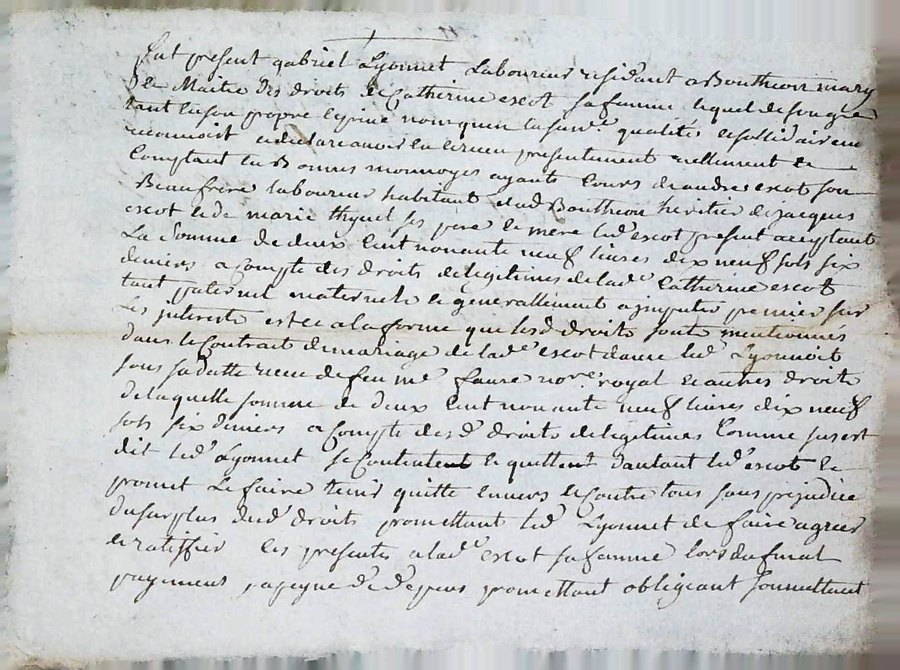 fut present gabriel Lyonnet Laboureur residant a Boutheon mary
& Maitre des droits de Catherine escot sa femme lequel de son gre
tant en son propre & prive nom quen lasusd.e qualité & sollidairem
reconnoit & declare avoir eu & receu presentement reellement &
Comptant en Bonnes monnoyes ayants Cours de andre escot son
Beaufrere laboureur habitant aud Bouthéon heritier de jacques
escot & de marie thyuel ses pere & mere led escot present acceptant
La Somme de deux Cent nonante neuf livres dix neuf sols six
deniers a Compte des droits delegitimes de lade Catherine escot
tant paternel maternels & generallement a jmputer premier sur
Les jnterests et ce a la forme que lesd droits sont mentionnés
dans le Contrat de mariage de lade escot davec led Lyonnoit
sous sa datte receu de feu me faure nore royal & autres droits
de laquelle somme de deux Cent nonante neuf livres dix neuf
sols six deniers a Compte desd droits de legitimes Comme jus est
dit led Lyonnet se Contentent & quittent dautant led escot &
promet Le faire tenir quitte Envers & Contre tous sans prejudice
du surplus desd droits promettant led Lyonnet de faire agreer
& ratiffier les presentes a lade escot sa famme lors du finat
payement a peyne de depens promettant obligeant soumettant